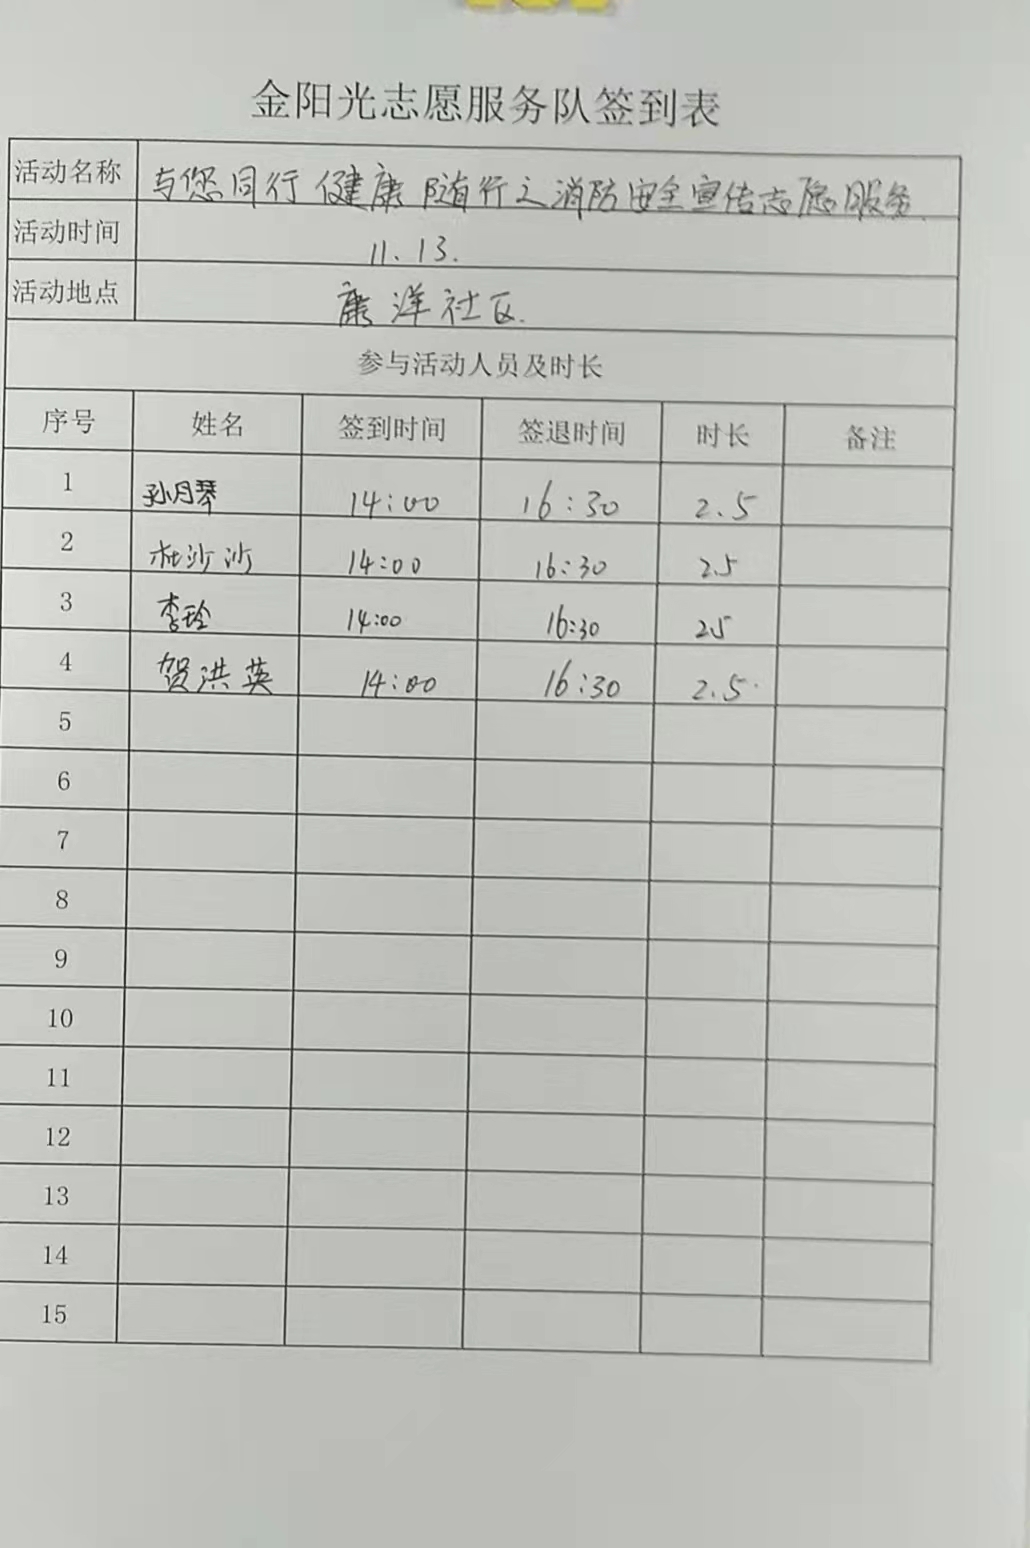 金阳光志愿服务队签到表
活动名称 与您同行 健康随行之消防安全宣传志愿服务
活动时间 11.13.
活动地点 康洋社区.
参与活动人员及时长
序号 姓名 签到时间 签退时间 时长 备注
1 孙月琴 14:00 16:30 2.5
2 杜沙沙 14:00 16:30 2.5
3 李玲 14:00 16:30 2.5
4 贺洪英 14:00 16:30 2.5
5
6
7
8
9
10
11
12
13
14
15